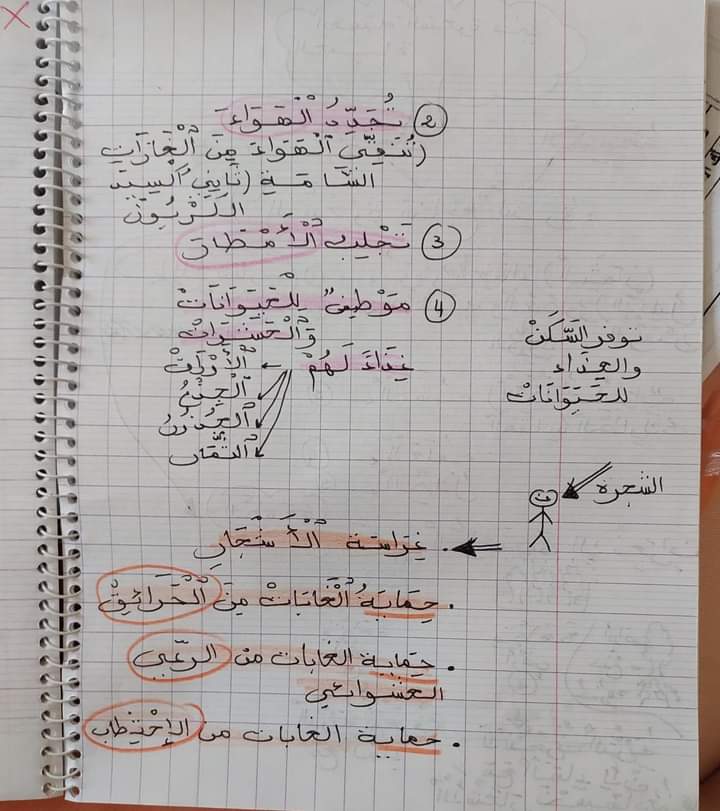 ② تُجَدِّدُ ٱلْهَوَاءَ
(تُنَقِّي ٱلْهَوَاءَ مِنَ ٱلْغَازَاتِ
السَّامَةِ (ثَانِي أُكْسِيد
الكَرْبُون
③ تَجْلِبُ ٱلْأَمْطَارَ
④ مَوْطِنٌ لِلْحَيَوَانَاتْ
وَٱلْحَشَرَاتْ
غِذَاءَ لَهُمْ ← ٱلْأَوْرَاقْ
ٱلْجِذْعُ
ٱلْجُذُورُ
ٱلثِّمَارُ
توفر السَّكَنْ
والغِذَاء
للحَيَوَانَاتْ
الشجرة
. غِرَاسَة ٱلْأَشْجَارِ
. حِمَايَةُ ٱلْغَابَاتْ مِنَ ٱلْحَرَائِقْ
. حِمَاية الغابات من الرّعْي
العشوائي
. حماية الغابات من الإِحْتِطاب